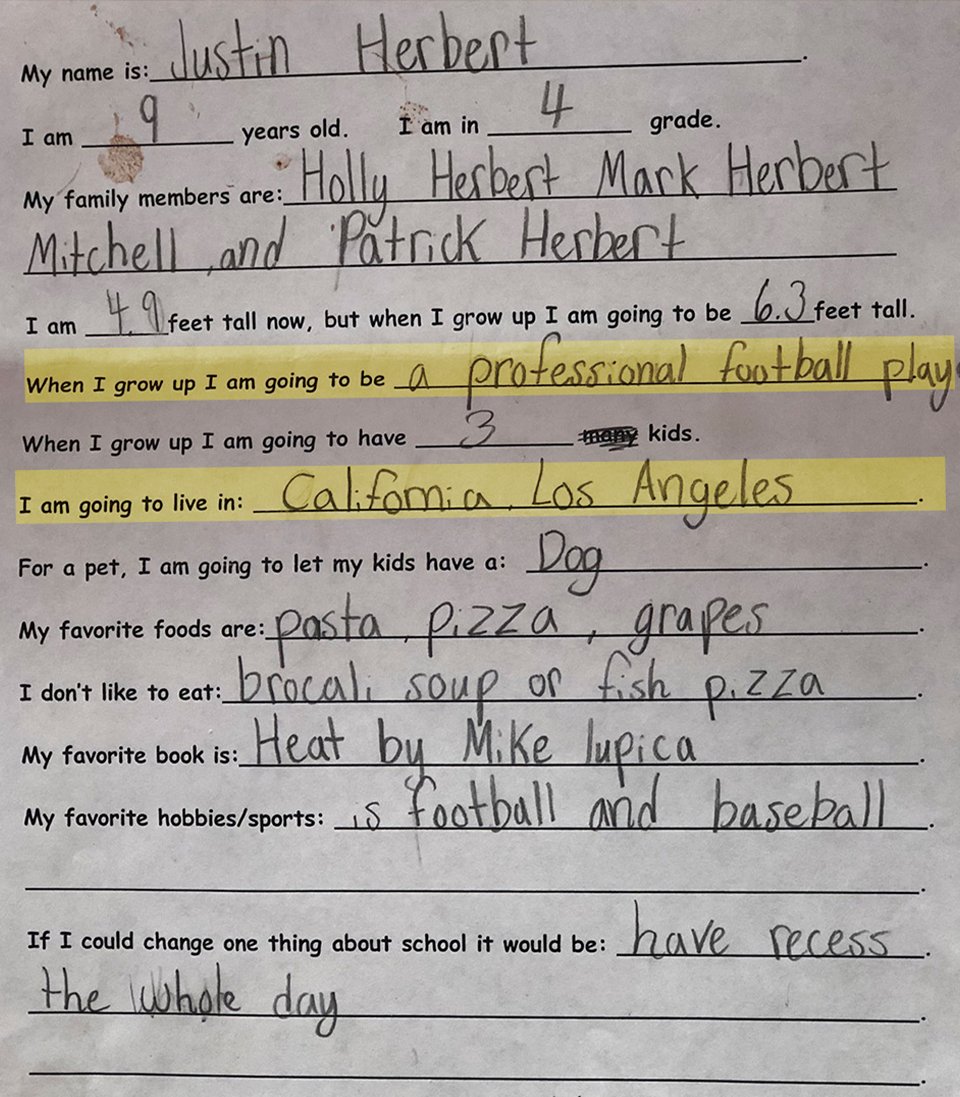 My name is: Justin Herbert.
I am 9 years old. I am in 4 grade.
My family members are: Holly Herbert Mark Herbert
Mitchell, and Patrick Herbert
I am 4.9 feet tall now, but when I grow up I am going to be 6.3 feet tall.
When I grow up I am going to be a professional football play
When I grow up I am going to have 3 many kids.
I am going to live in: California, Los Angeles.
For a pet, I am going to let my kids have a: Dog.
My favorite foods are: pasta, pizza, grapes.
I don't like to eat: brocali soup or fish pizza.
My favorite book is: Heat by Mike lupica.
My favorite hobbies/sports: is football and baseball.
If I could change one thing about school it would be: have recess.
the whole day.